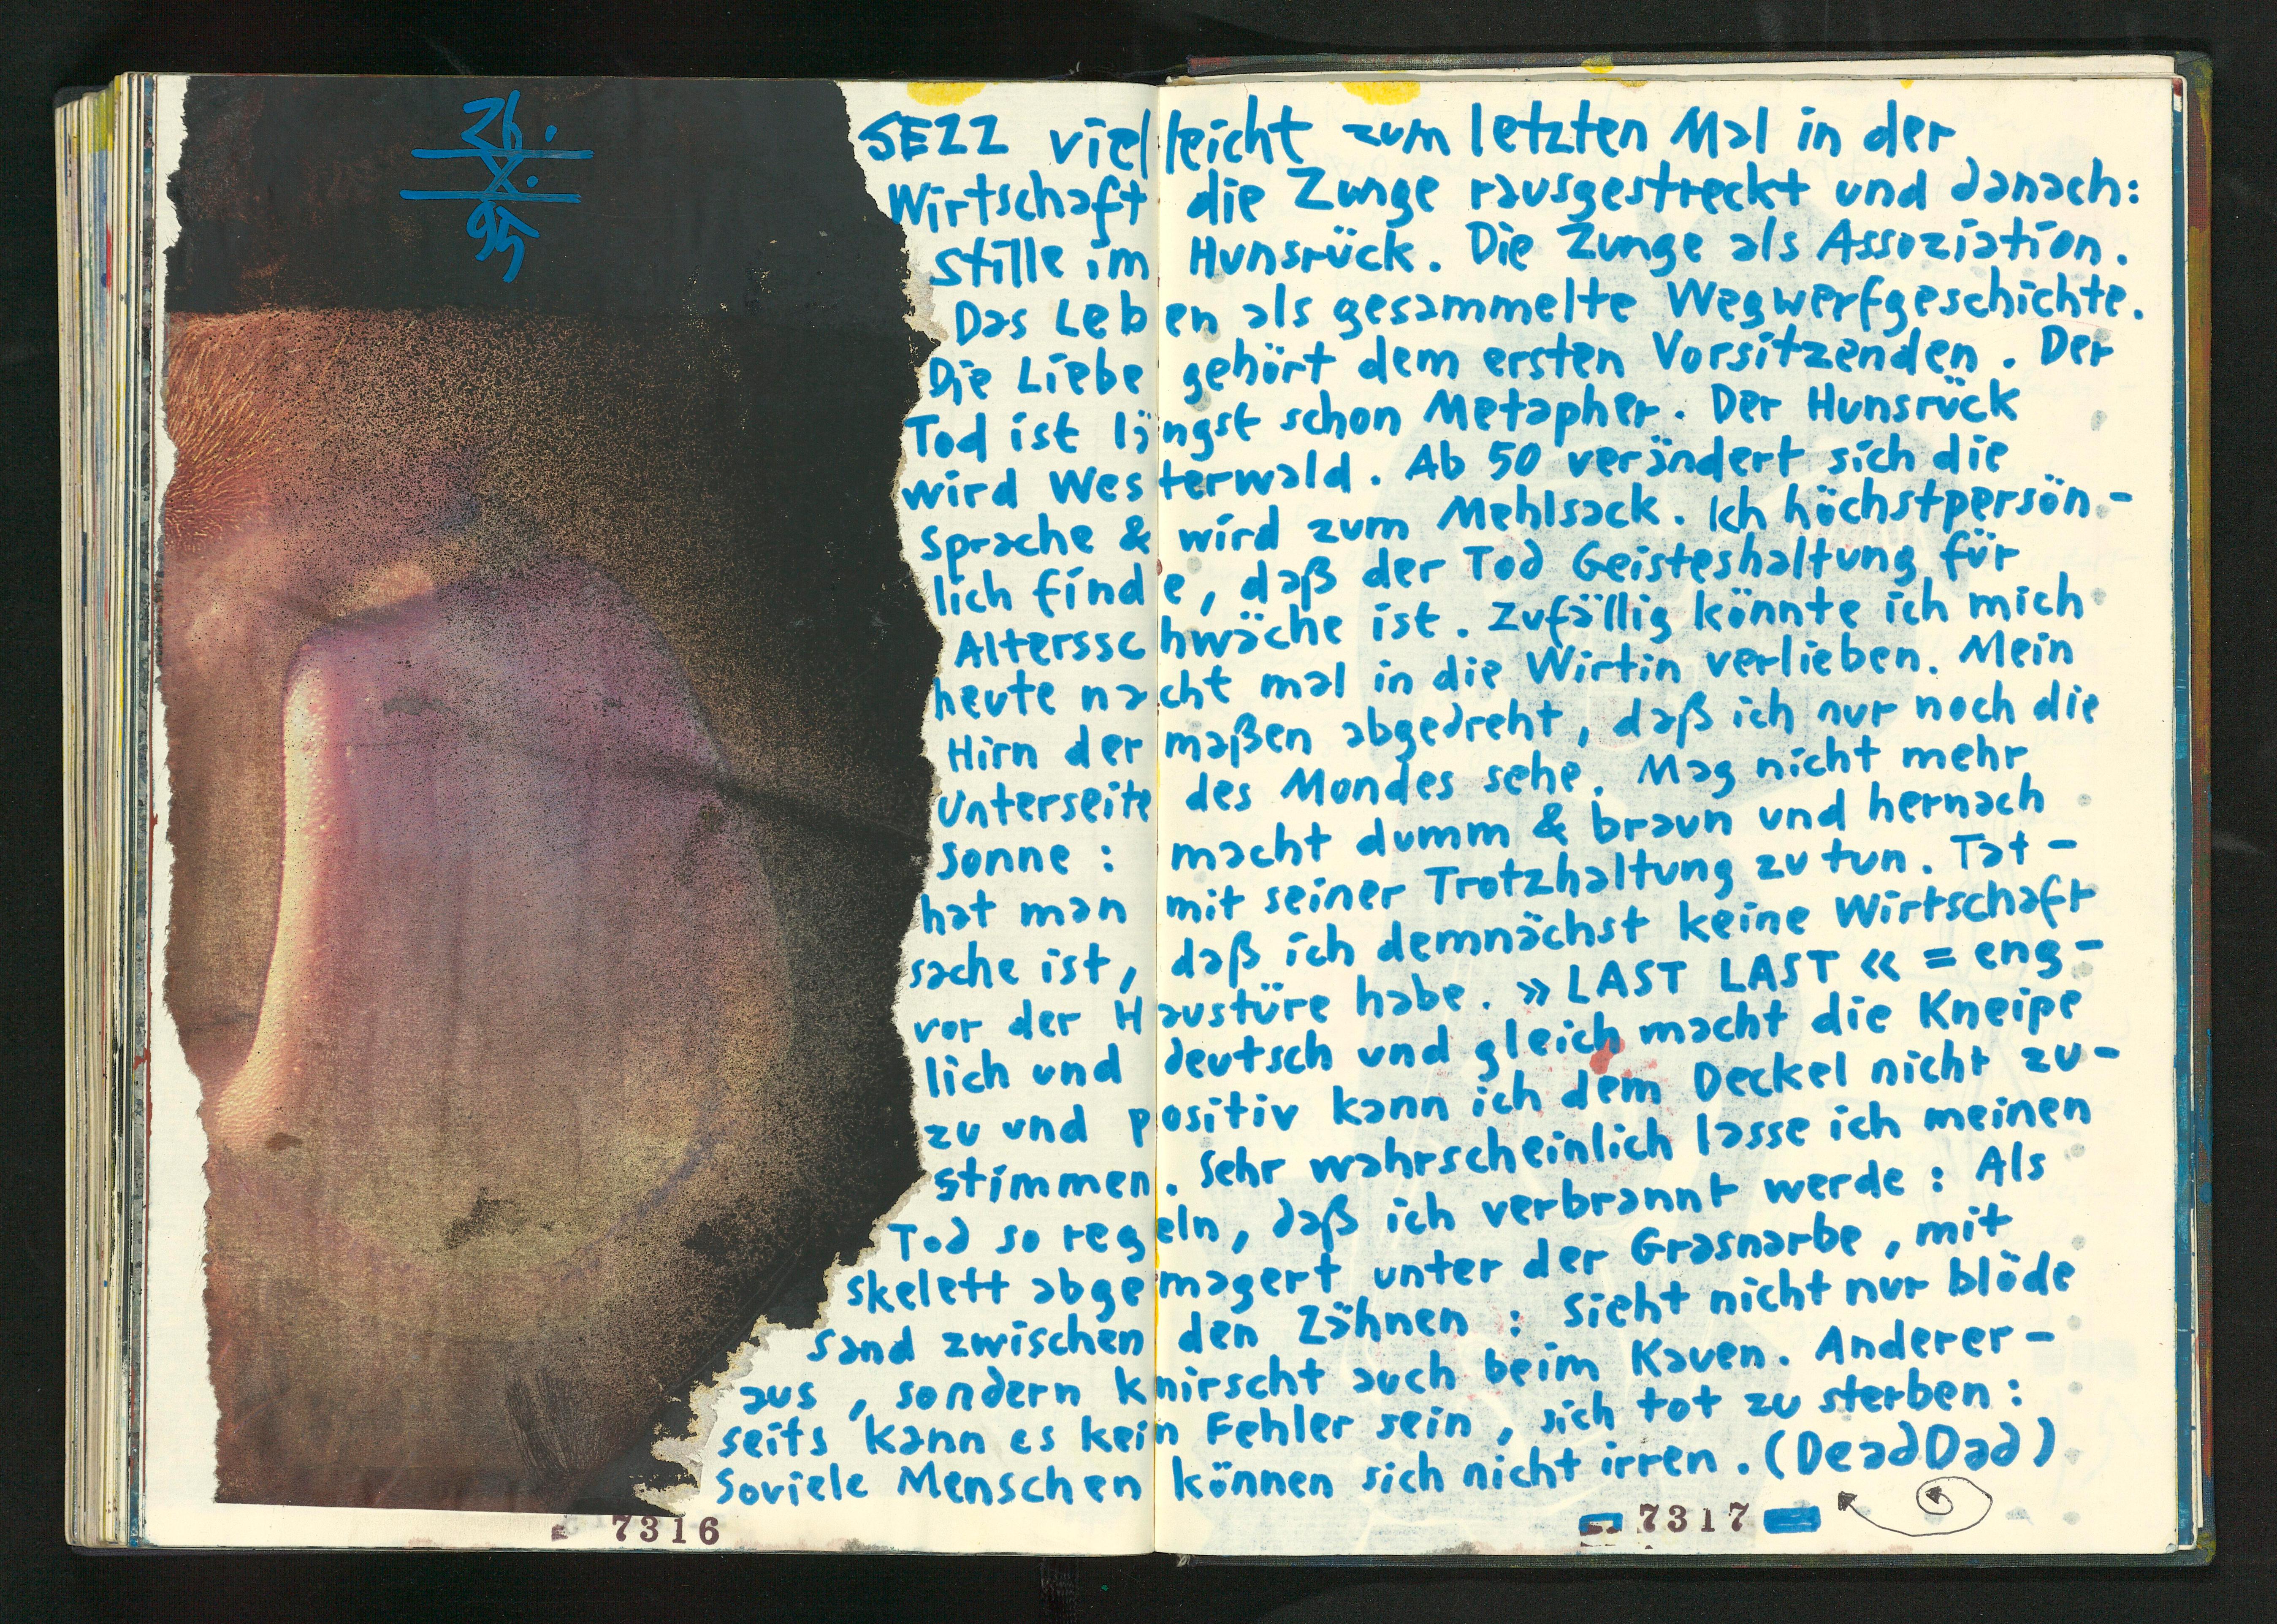 26.
X.
95
SEZZ vielleicht zum letzten Mal in der
Wirtschaft die Zunge rausgestreckt und danach:
stille im Hunsrück. Die Zunge als Assoziation.
Das Leben als gesammelte Wegwerfgeschichte.
Die Liebe gehört dem ersten Vorsitzenden. Der
Tod ist längst schon Metapher. Der Hunsrück
wird Westerwald. Ab 50 verändert sich die
Sprache & wird zum Mehlsack. Ich höchstpersön-
lich finde, daß der Tod Geisteshaltung für
Altersschwäche ist. Zufällig könnte ich mich
heute nacht mal in die Wirtin verlieben. Mein
Hirn dermaßen abgedreht, daß ich nur noch die
Unterseite des Mondes sehe. Mag nicht mehr
Sonne: macht dumm & braun und hernach
hat man mit seiner Trotzhaltung zu tun. Tat-
sache ist, daß ich demnächst keine Wirtschaft
vor der Haustüre habe. »LAST LAST« = eng-
lich und deutsch und gleich macht die Kneipe
zu und positiv kann ich dem Deckel nicht zu-
stimmen. Sehr wahrscheinlich lasse ich meinen
Tod so regeln, daß ich verbrannt werde: Als
Skelett abgemagert unter der Grasnarbe, mit
Sand zwischen den Zähnen: Sieht nicht nur blöde
aus, sondern knirscht auch beim Kauen. Anderer-
seits kann es kein Fehler sein, sich tot zu sterben:
Soviele Menschen können sich nicht irren. (DeadDad)
7316
7317